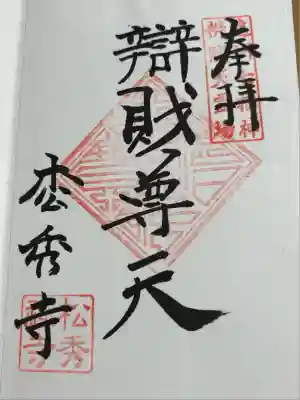 奉拝
辯財尊天
松秀寺
松秀